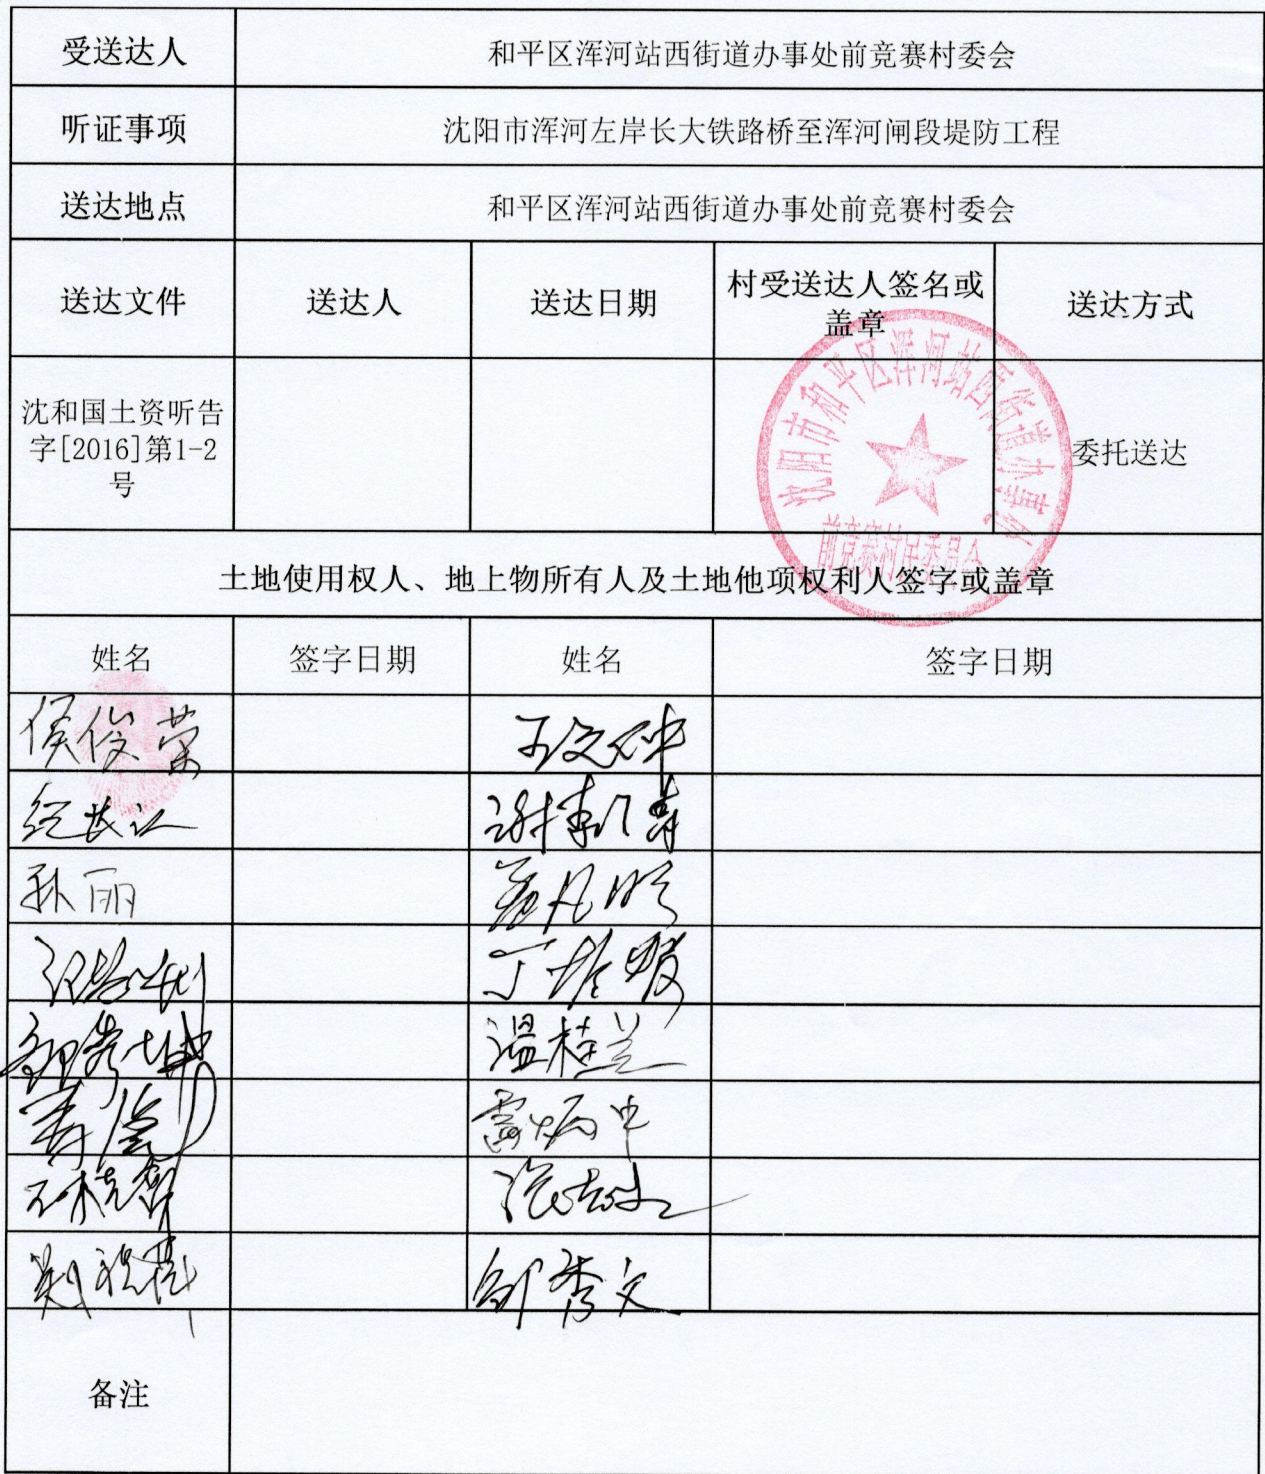 受送达人 和平区浑河站西街道办事处前竞赛村委会
听证事项 沈阳市浑河左岸长大铁路桥至浑河闸段堤防工程
送达地点 和平区浑河站西街道办事处前竞赛村委会
送达文件 送达人 送达日期 村受送达人签名或
盖章 送达方式
沈和国土资听告
字[2016]第1-2
号
委托送达
沈阳市和平区浑河站西街道办事处
前竞赛村民委员会
土地使用权人、地上物所有人及土地他项权利人签字或盖章
姓名 签字日期 姓名 签字日期
侯俊荣 王文仲
孙丽
丁
温桂兰
邹秀文
备注